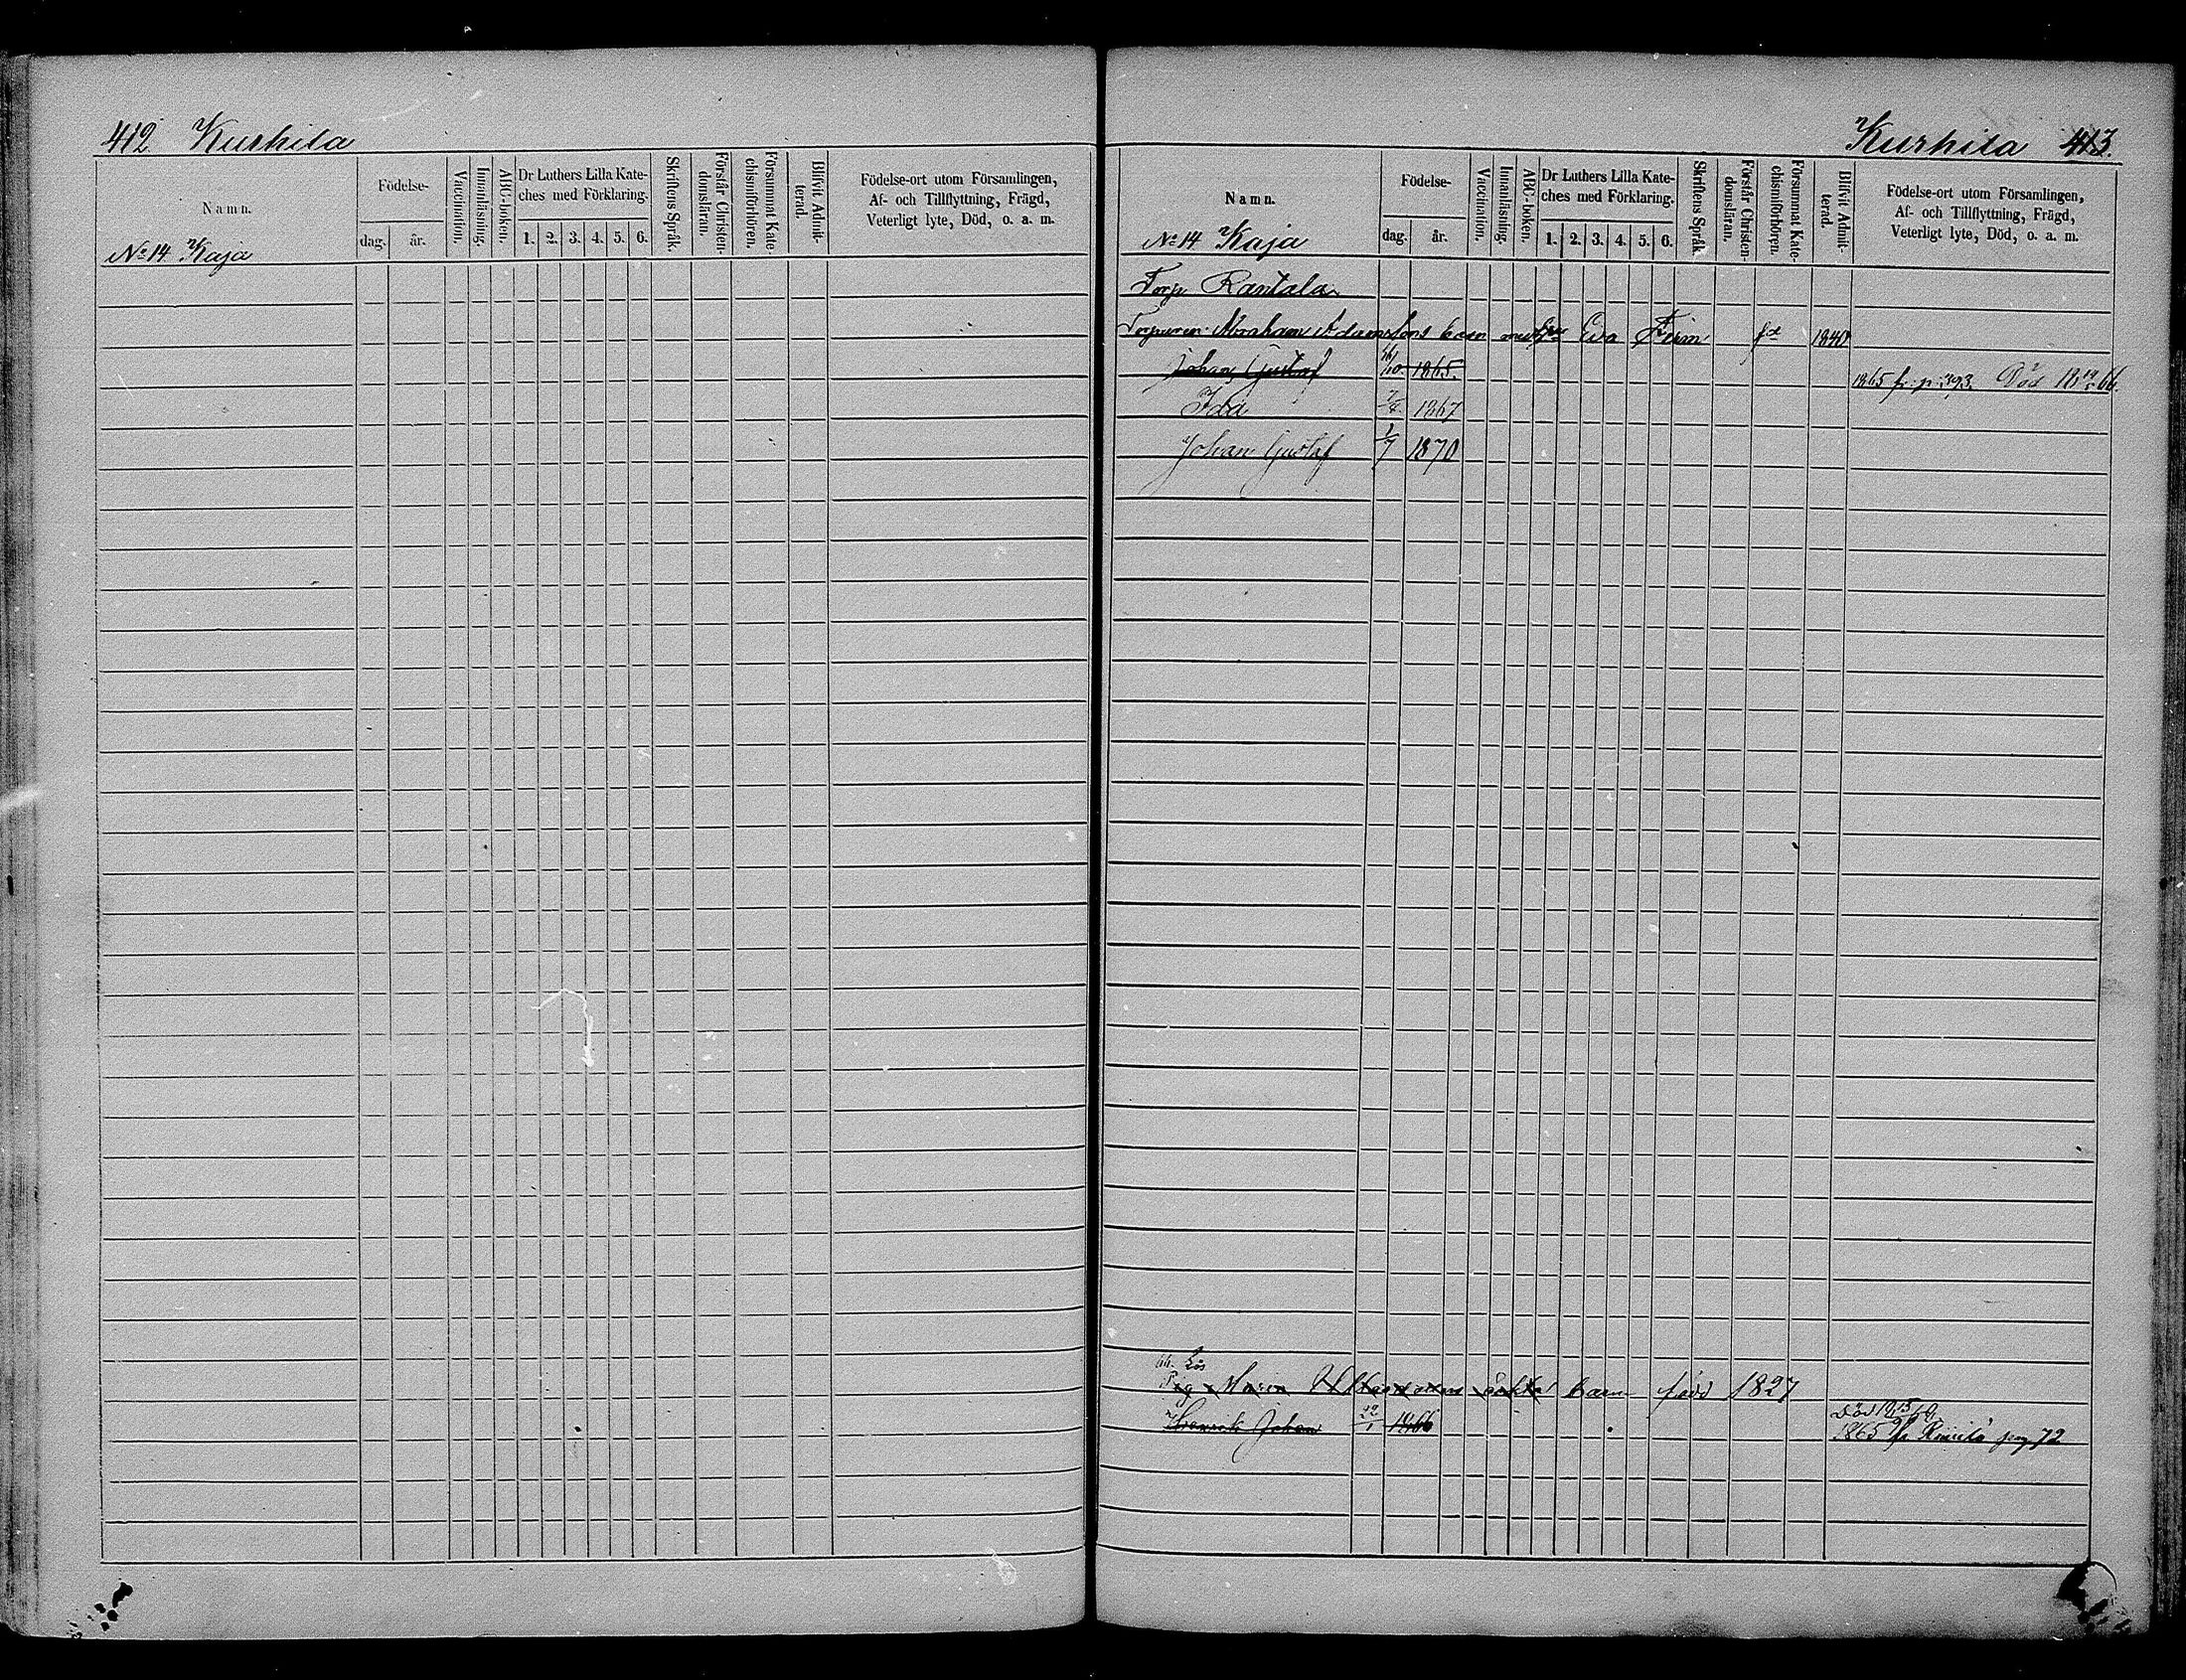 412 Kurhila
Namn.
Födelse-
dag. år.
Vaccination.
Innanläsning.
ABC-boken.
Dr Luthers Lilla Kate-
ches med Förklaring.
1. 2. 3. 4. 5. 6.
Skriftens Språk.
Förstår Christen-
domsläran.
Försummat Kate-
chismiförhören.
Blifvit Admit-
terad.
Födelse-ort utom Församlingen,
Af- och Tillflyttning, Frägd,
Veterligt lyte, Död, o. a. m.
No 14 Kaja
Kurhila 413.
Namn.
Födelse-
dag. år.
Vaccination.
Innanläsning.
ABC-boken.
Dr Luthers Lilla Kate-
ches med Förklaring.
1. 2. 3. 4. 5. 6.
Skriftens Språk
Förstår Christen-
domsläran.
Försummat Kate-
chismiförhören.
Blifvit Admit-
terad.
Födelse-ort utom Församlingen,
Af- och Tillflyttning, Frägd,
Veterligt lyte, Död, o. a. m.
No 14 Kaja
Torp. Rantala
Torparen Abraham Adamssons barn med Eva fd 1840
Johan Gustaf 1865. 1865 fr. p. 393. Död 66.
Ida 1867
Johan Gustaf 1/7 1870
Lis
barn född 1827
Henrik Johan 1866 Död
1865 pag 72